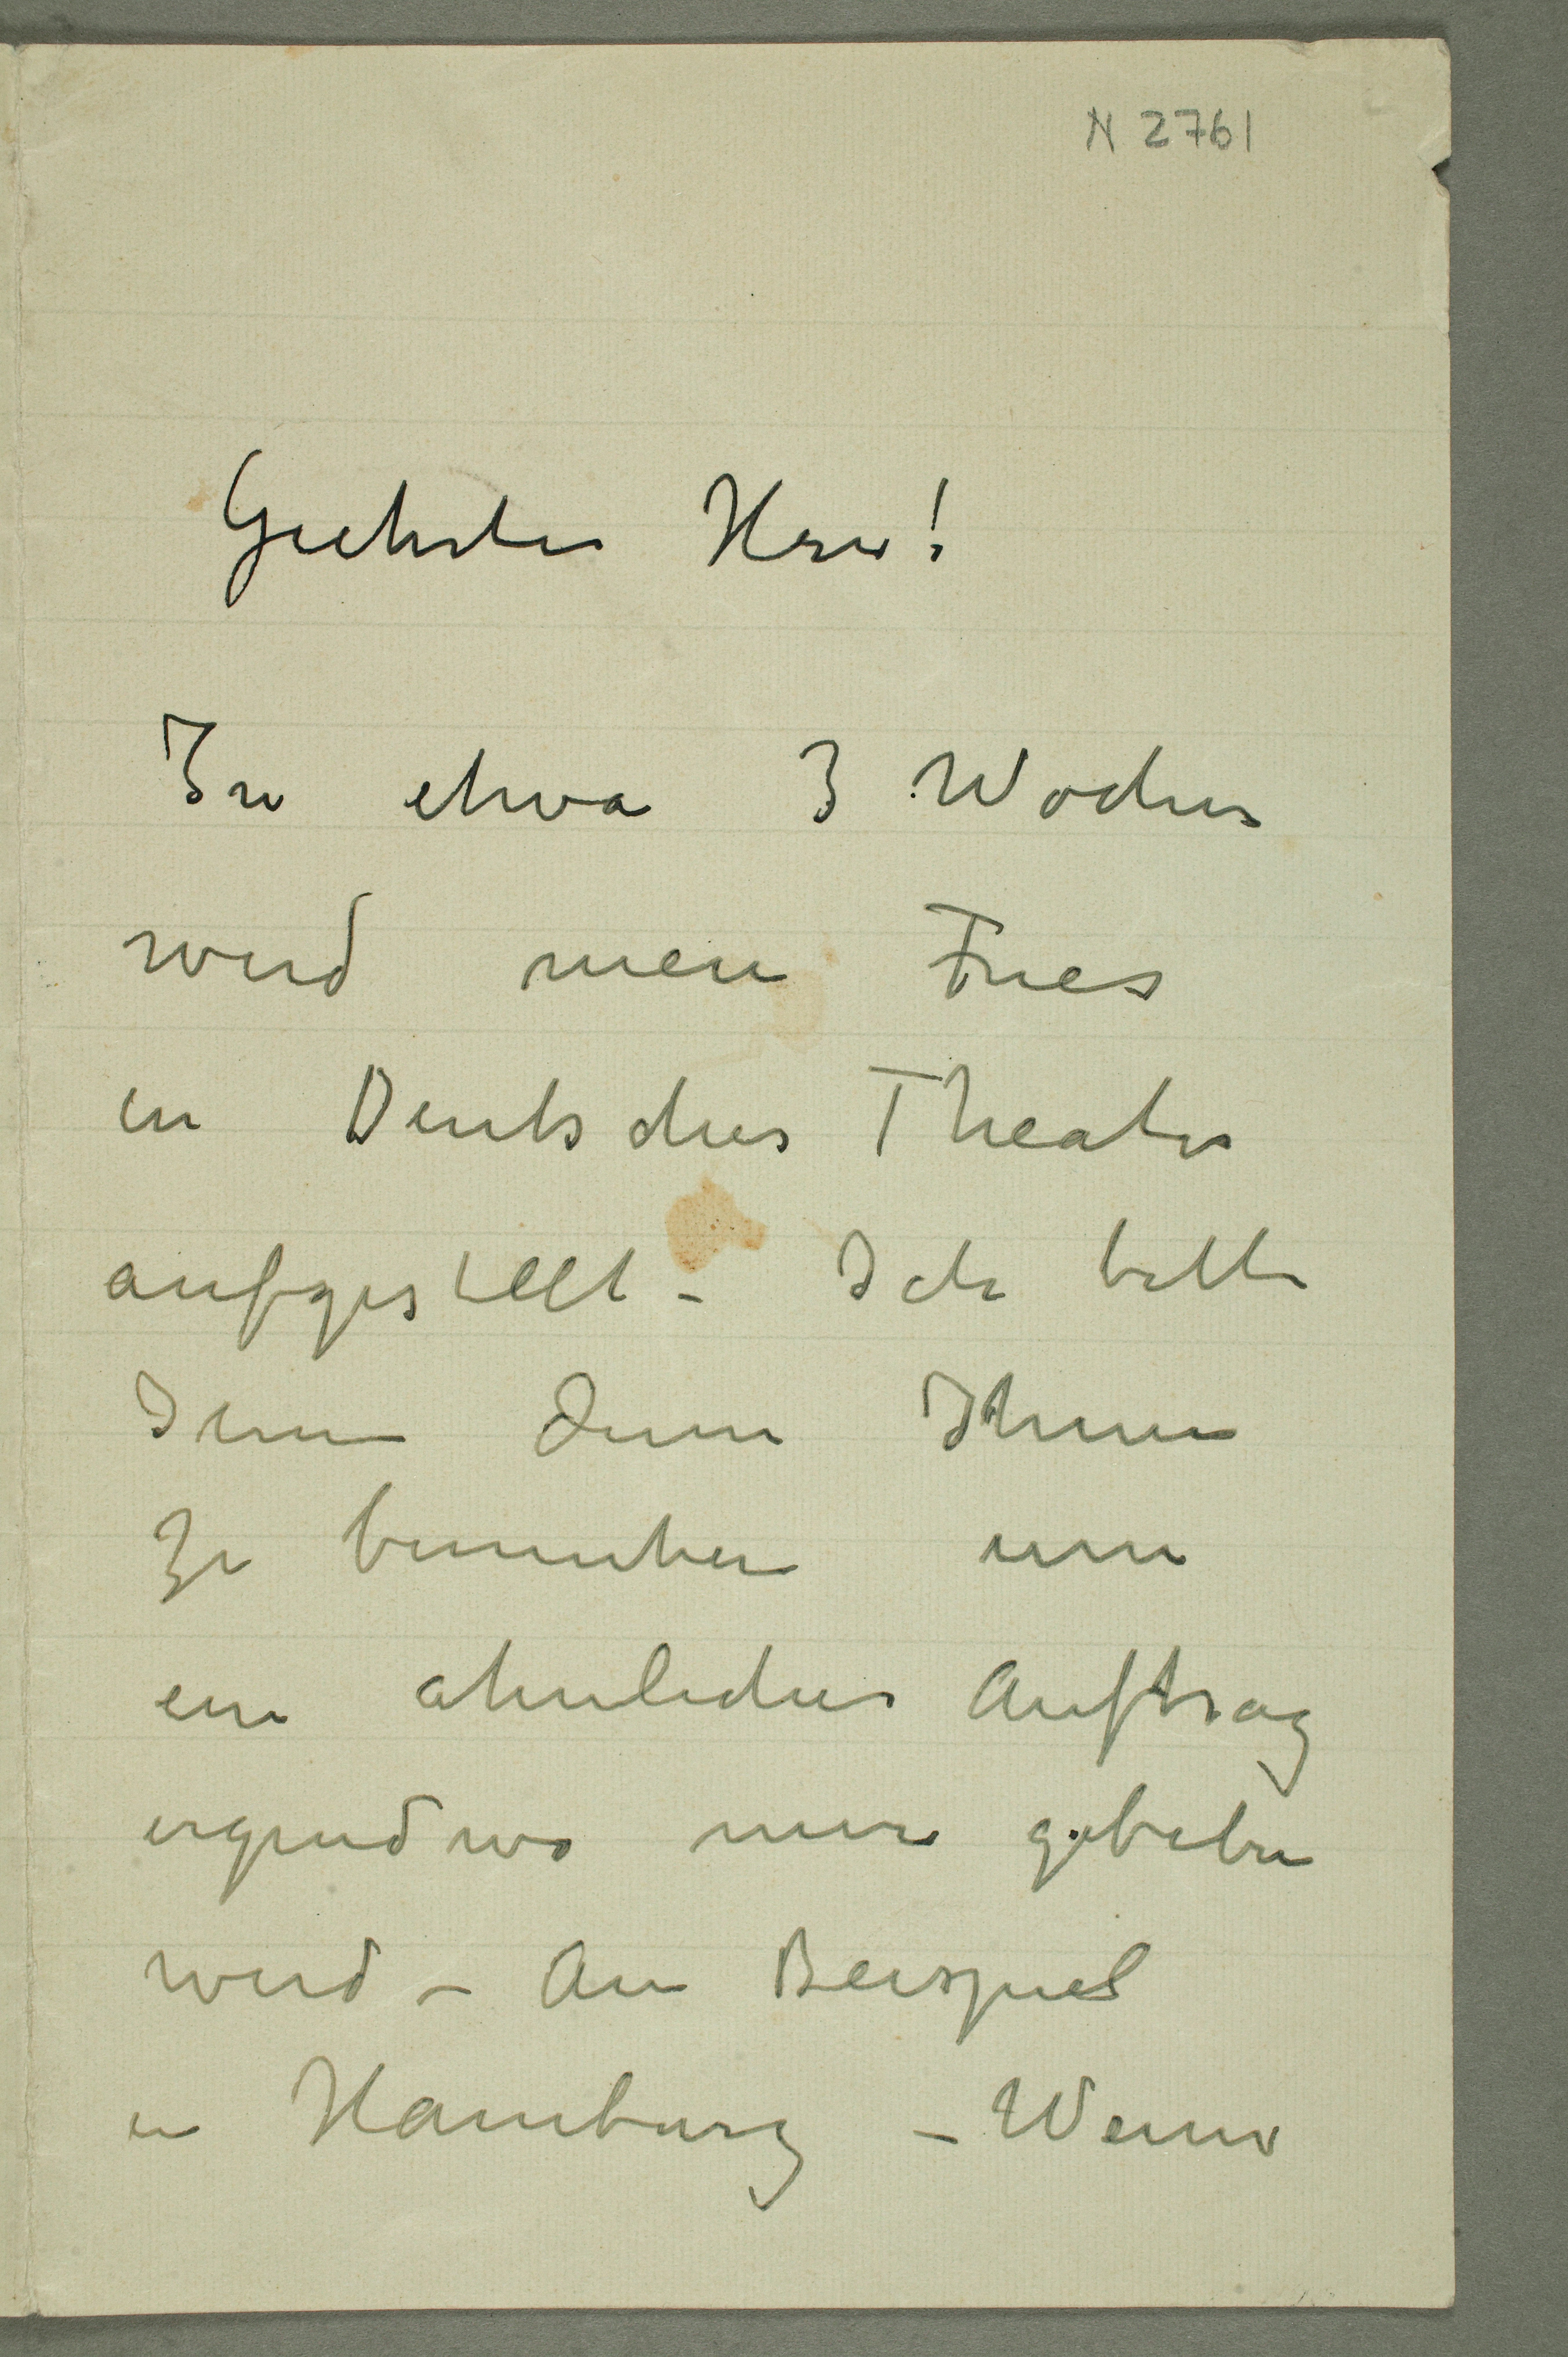 N 2761
Geehrter Herr!
In etwa 3 Wochen
wird mein Fries
in Deutsches Theater
aufgestellt – Ich bitte
Ihnen
zu um
ein ähnliches Auftrag
irgendwo mir gebeben
wird – Am Beispiel
in Hamburg – Wenn